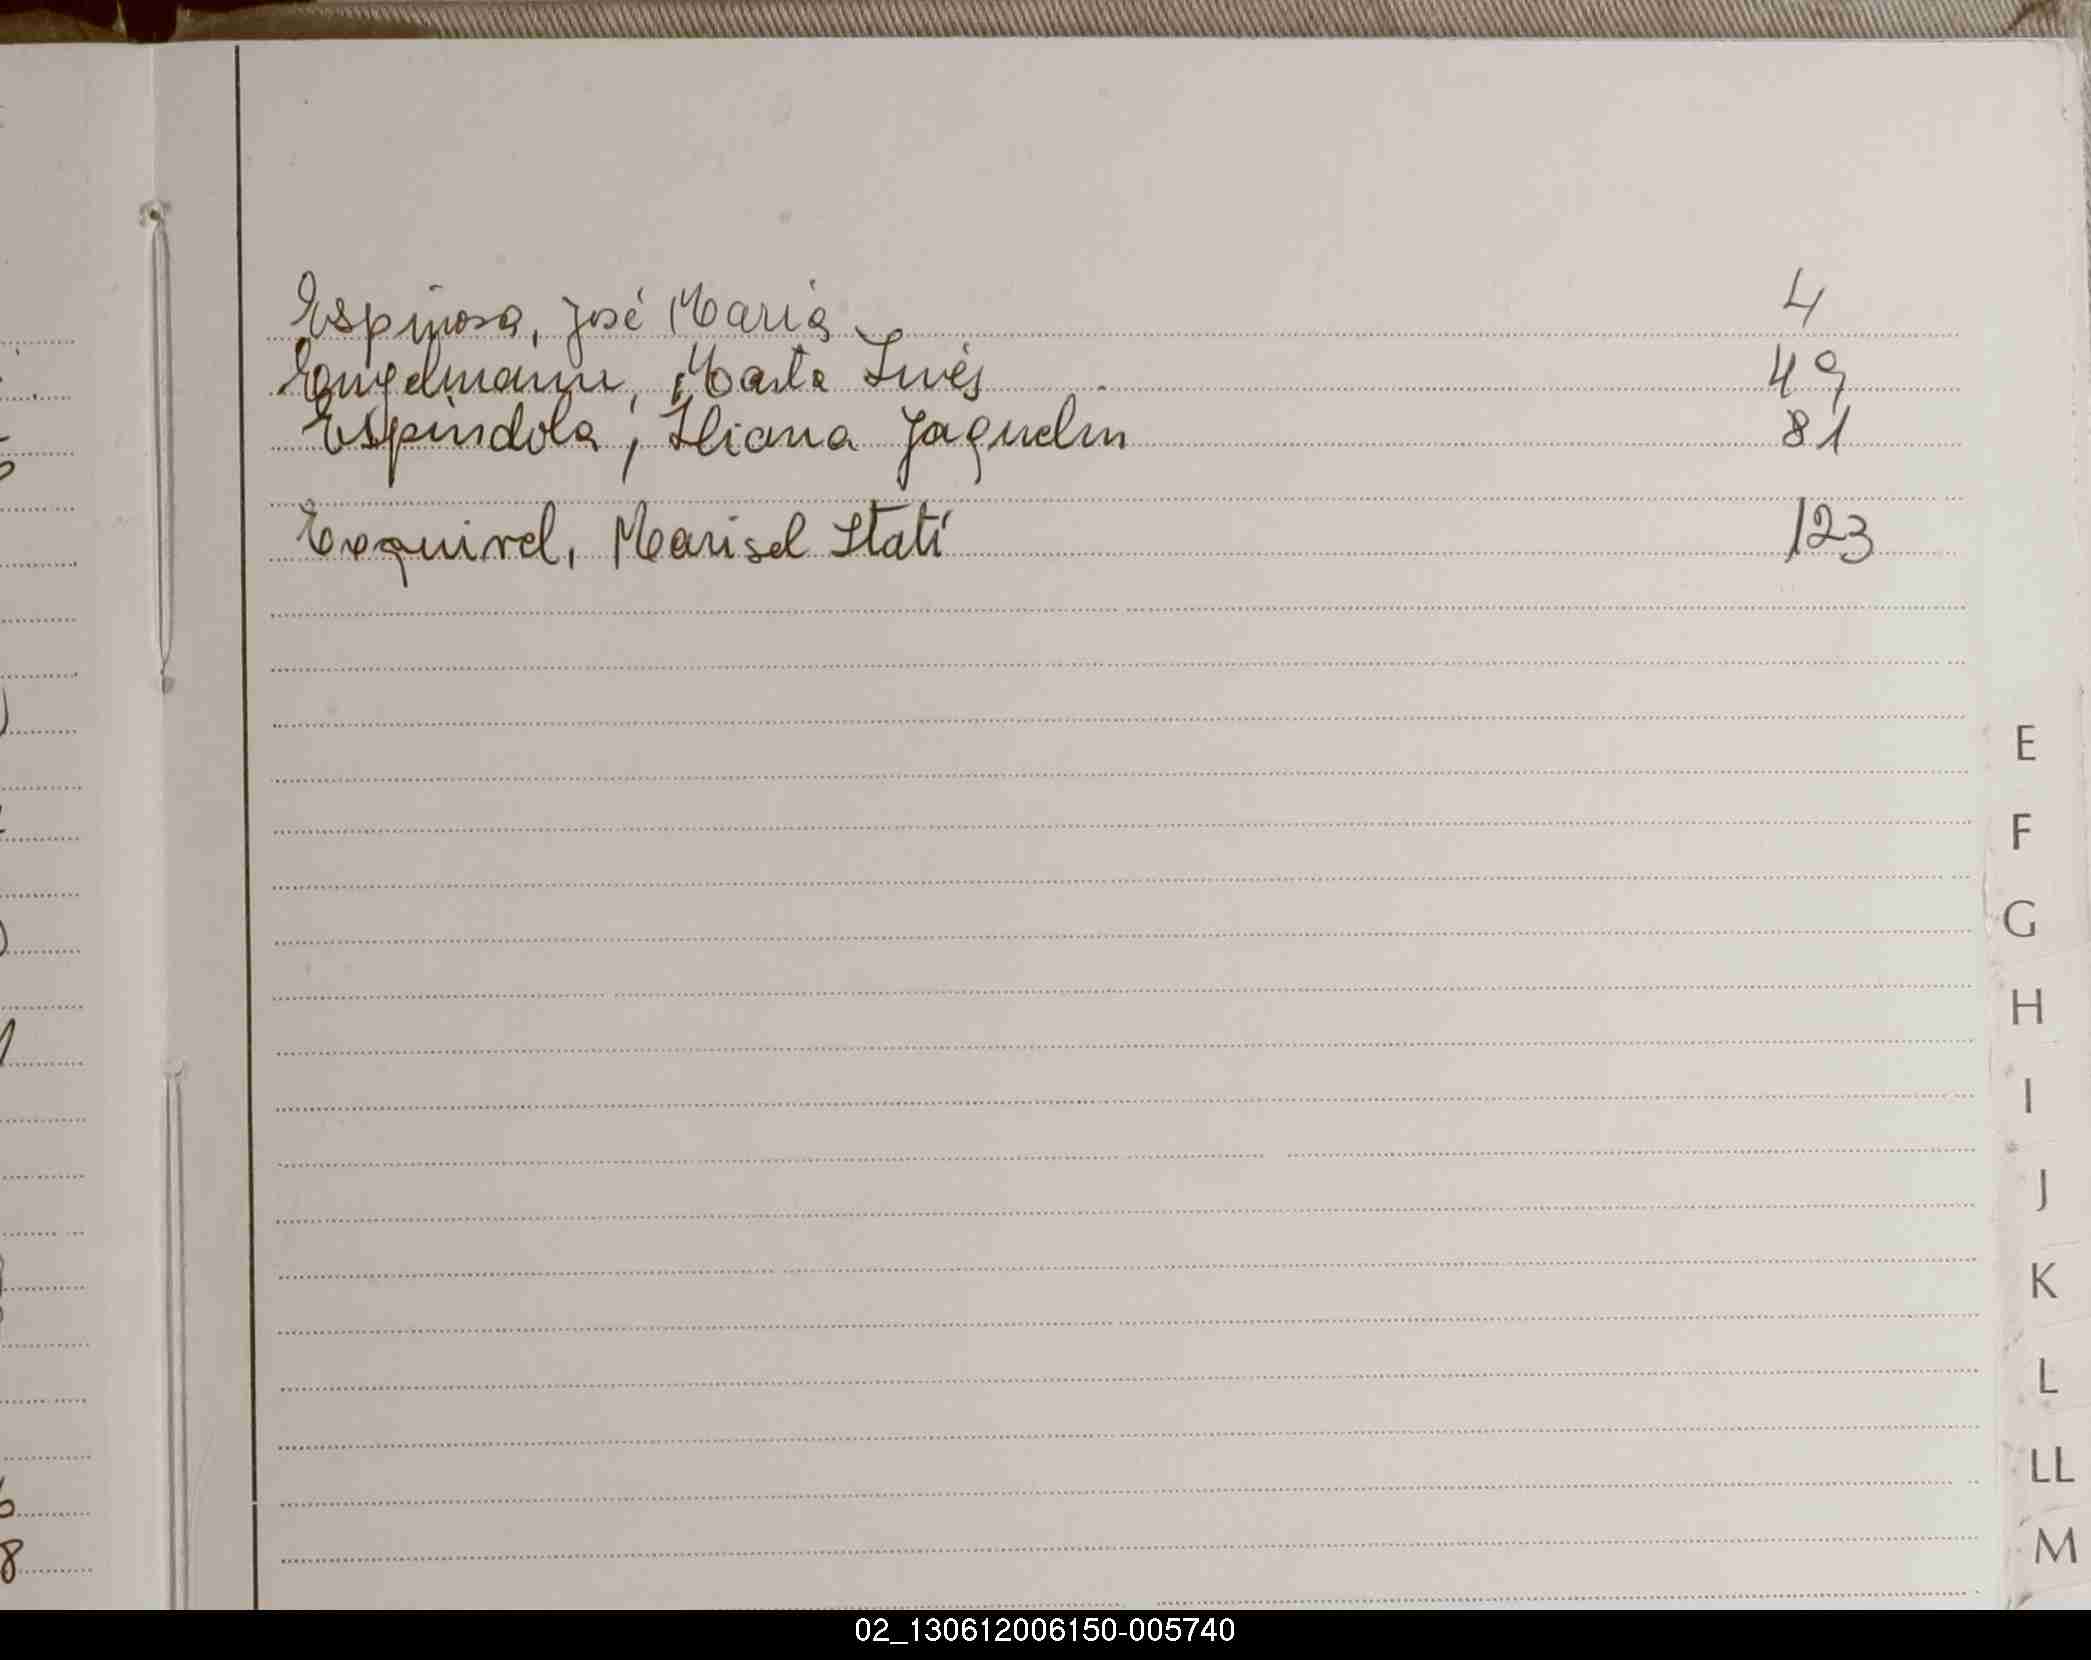 Espinosa, José María 4
Engelmann, Marta Inés 49
Espíndola, Iliana Jaquelin 81
Esquivel, Marisel Itatí 123
E
F
G
H
I
J
K
L
LL
M
8
02_130612006150-005740